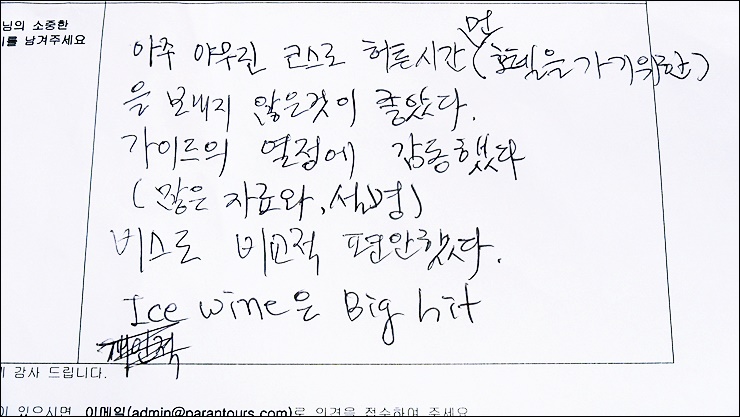 님의 소중한
를 남겨주세요
아주 야우린 코스로 허튼시간 (먼 호텔을 가기위한)
을 보내지 않은것이 좋았다.
가이드의 열정에 감동했다
(많은 자료와, 설명)
버스로 비교적 편안했다.
Ice wine은 Big hit
개인적
감사 드립니다.
이 있으시면 이메일(admin@parantours.com)로 의견을 접수하여 주세요